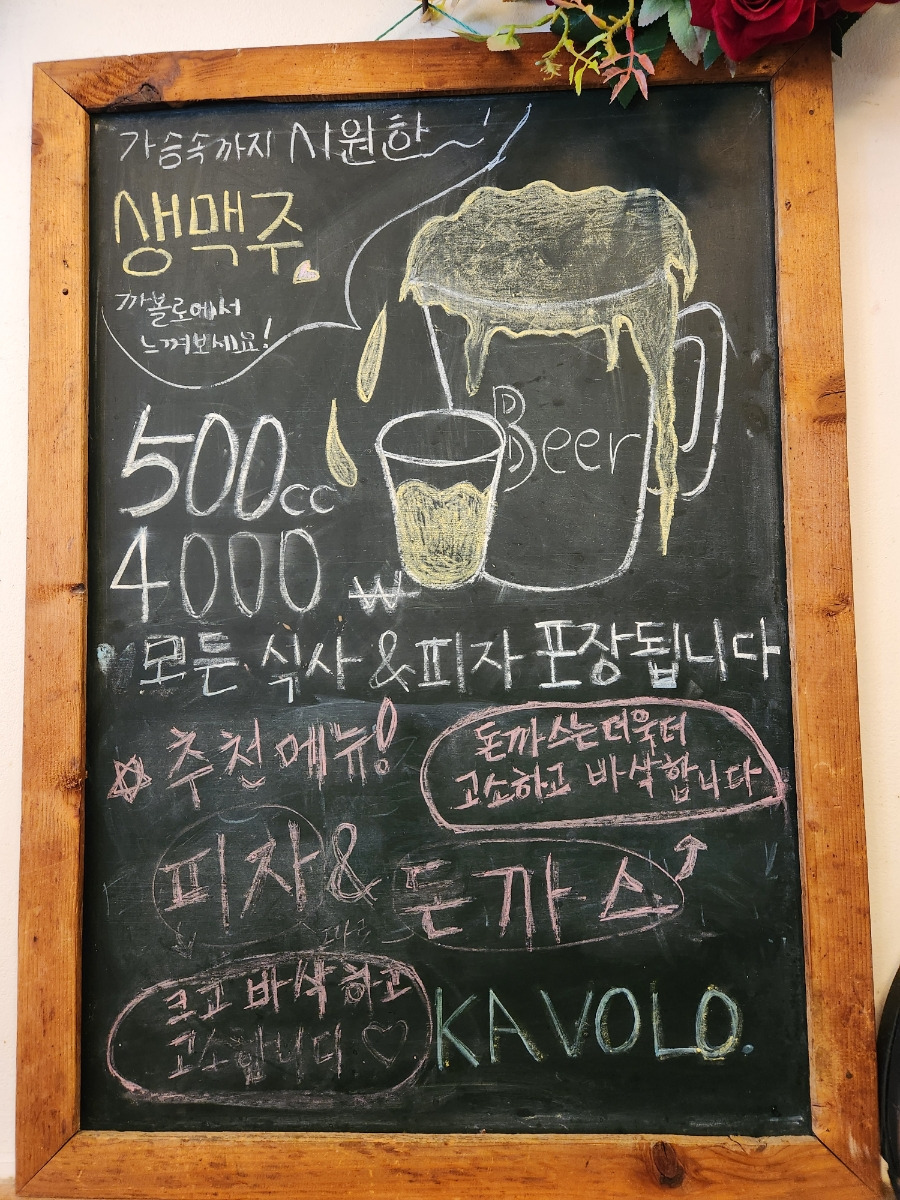 가슴속까지 시원한~
생맥주
까볼로에서
느껴보세요!
Beer
500cc
4000 ₩
모든 식사 & 피자 포장됩니다
추천메뉴!
돈까스는 더욱더
고소하고 바삭합니다
피자 & 돈까스
크고 바삭하고
고소합니다 ♡
KAVOLO.